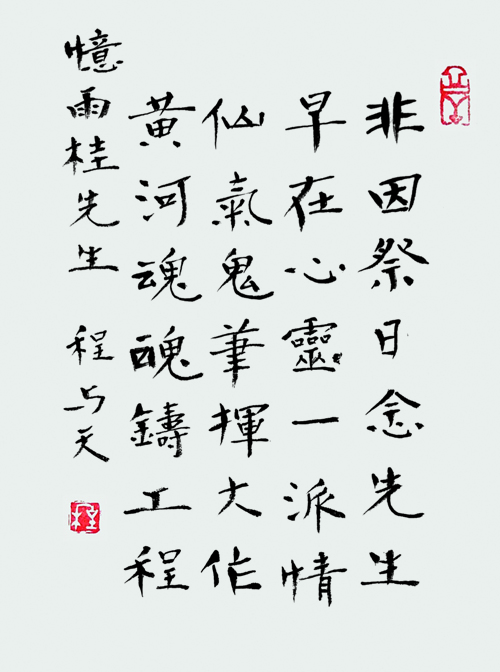 非因祭日念先生
早在心靈一派情
仙氣鬼筆揮大作
黄河魂醜鑄工程
憶雨桂先生 程与天